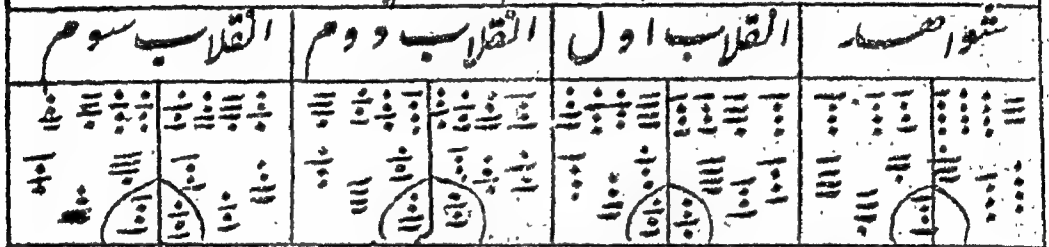 شواهد انقلاب اول انقلاب دوم انقلاب سوم